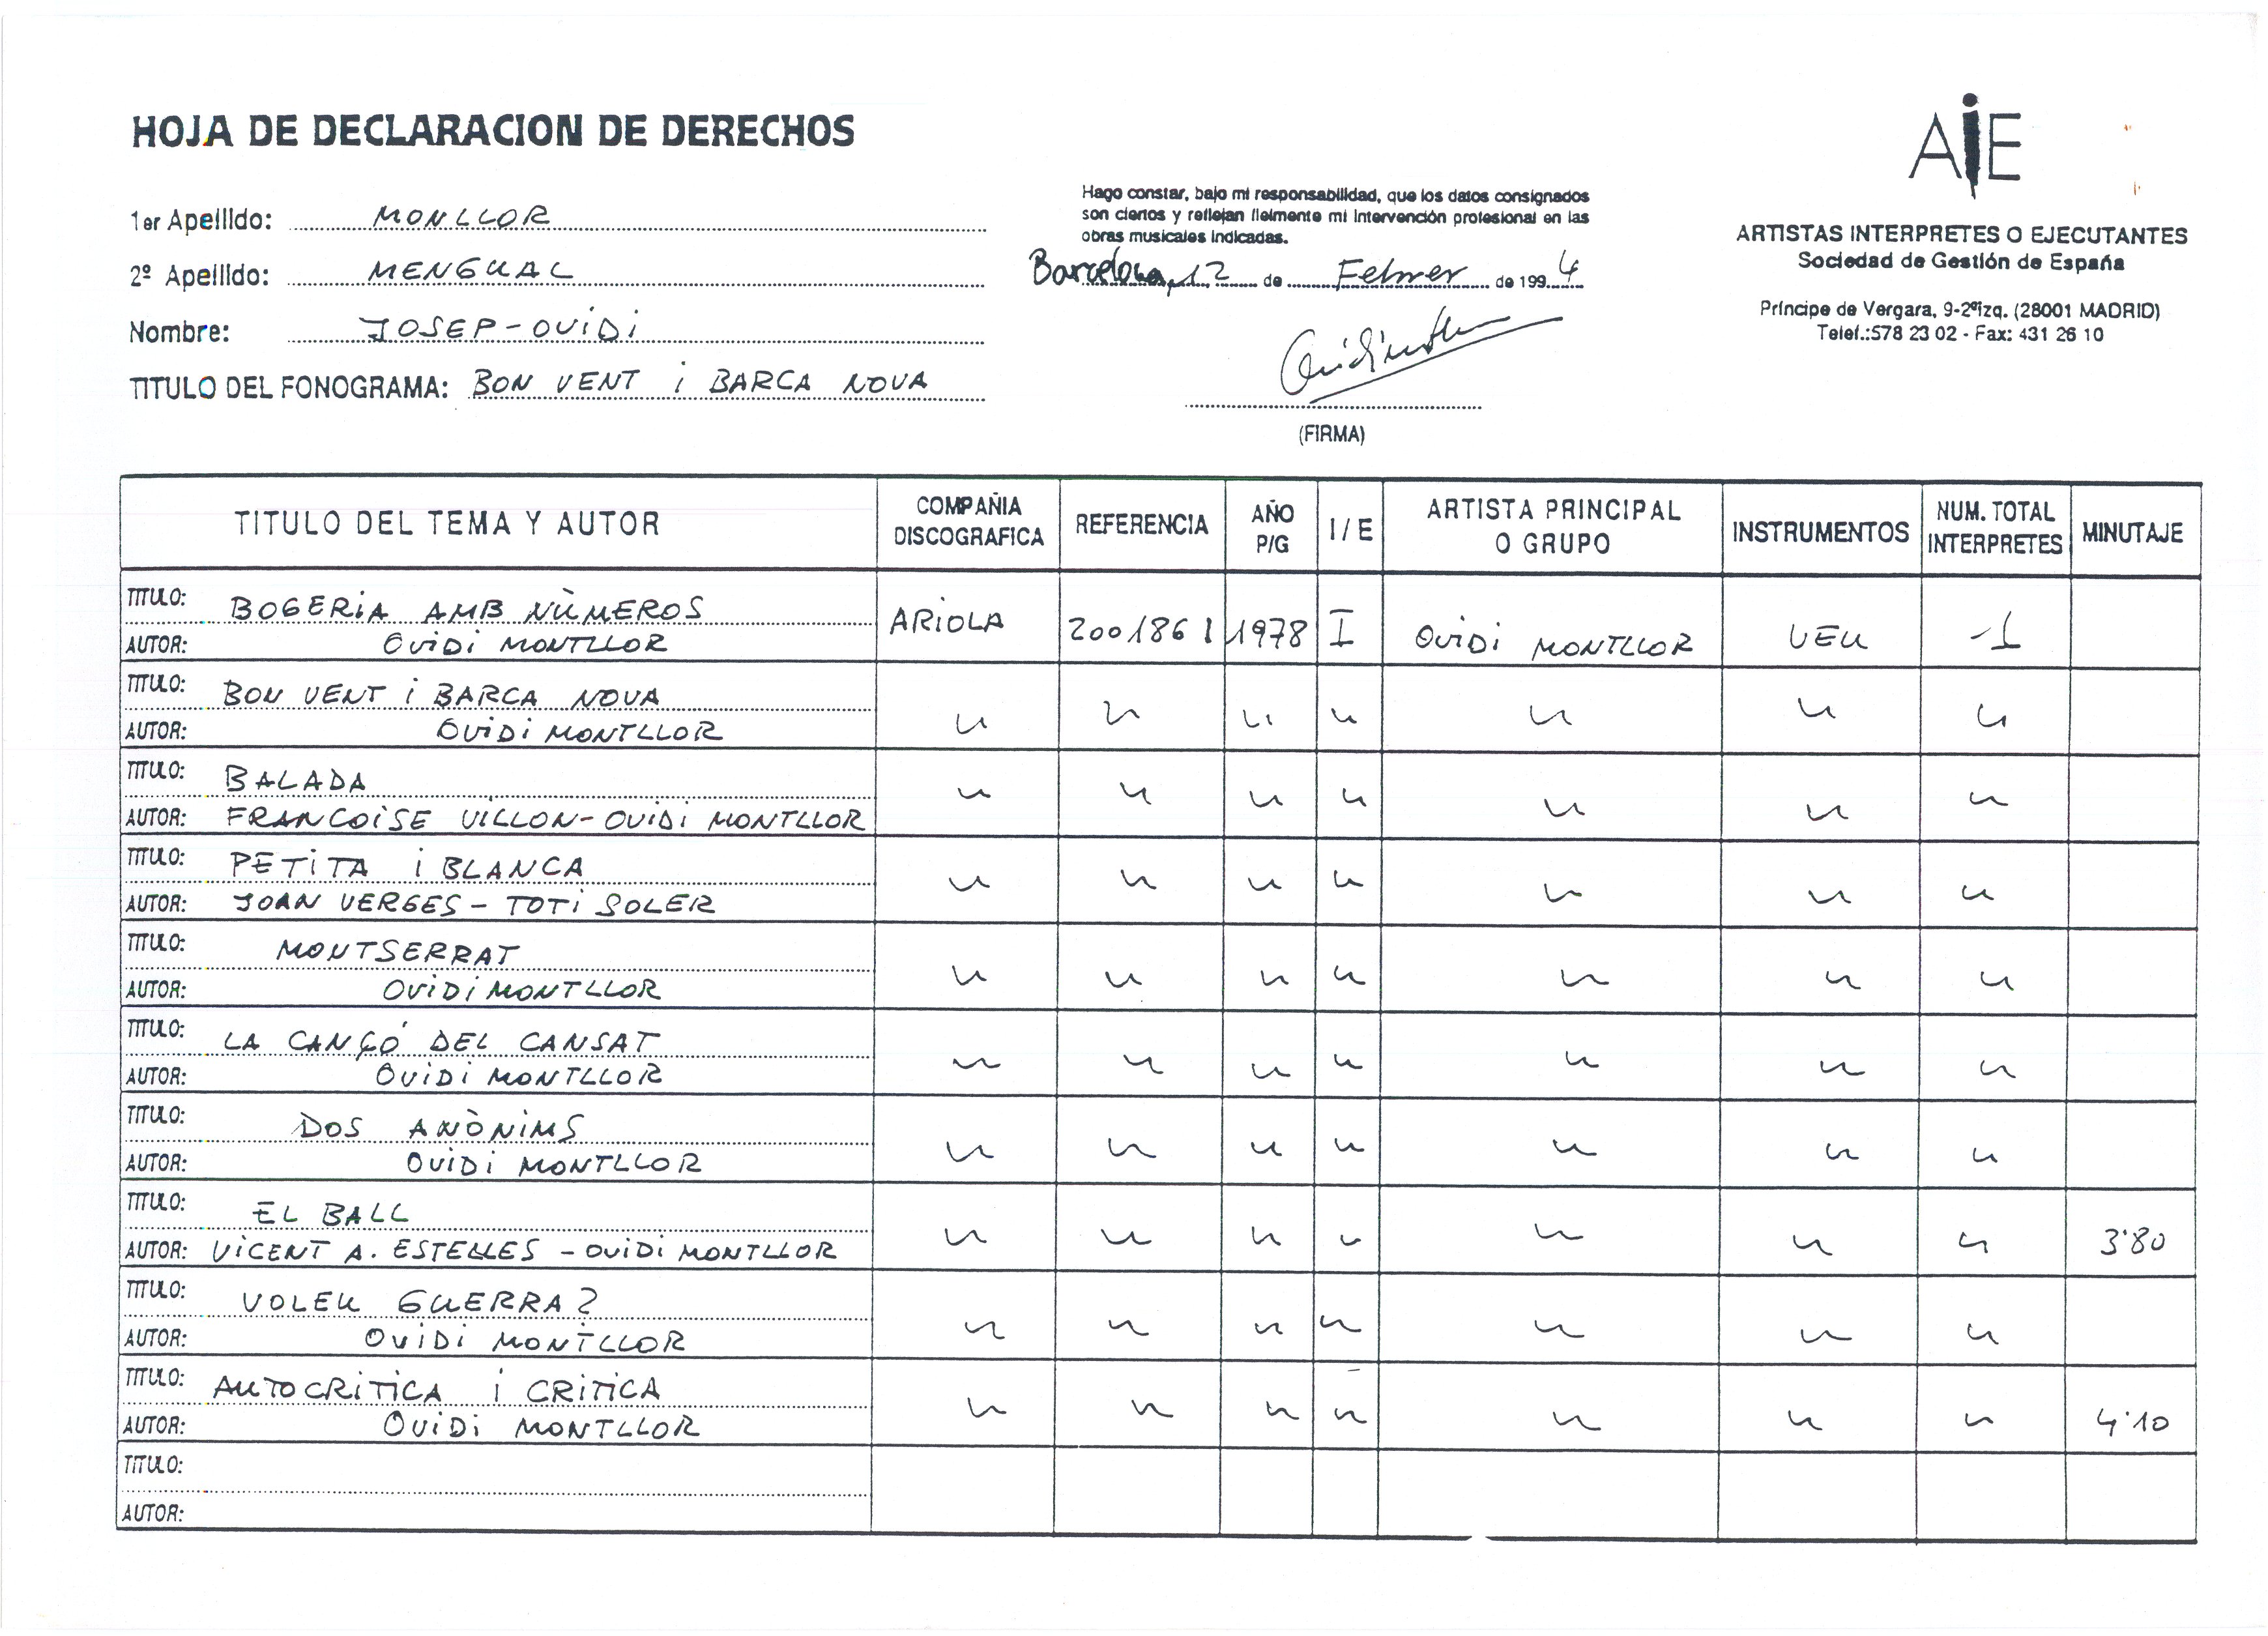 HOJA DE DECLARACION DE DERECHOS
AIE
ARTISTAS INTERPRETES O EJECUTANTES
Sociedad de Gestión de España
Príncipe de Vergara, 9-2ºizq. (28001 MADRID)
Telef.:578 23 02 - Fax: 431 26 10
1er Apellido: MONLLOR
2º Apellido: MENGUAL
Nombre: JOSEP-OVIDI
TITULO DEL FONOGRAMA: BON VENT i BARCA NOVA
Hago constar, bajo mi responsabilidad, que los datos consignados
son ciertos y reflejan fielmente mi intervención profesional en las
obras musicales indicadas.
Barcelona, 12 de Febrer de 1994
(FIRMA)
TITULO DEL TEMA Y AUTOR COMPAÑIA DISCOGRAFICA REFERENCIA AÑO P/G I / E ARTISTA PRINCIPAL O GRUPO INSTRUMENTOS NUM. TOTAL INTERPRETES MINUTAJE
TITULO: BOGERIA AMB NÙMEROS
AUTOR: OVIDI MONTLLOR
ARIOLA 200186 I 1978 I OVIDI MONTLLOR VEU 1
TITULO: BON VENT i BARCA NOVA
AUTOR: OVIDI MONTLLOR
TITULO: BALADA
AUTOR: FRANCOISE VILLON-OVIDI MONTLLOR
TITULO: PETITA i BLANCA
AUTOR: JOAN VERGES - TOTI SOLER
TITULO: MONTSERRAT
AUTOR: OVIDI MONTLLOR
TITULO: LA CANÇÓ DEL CANSAT
AUTOR: OVIDI MONTLLOR
TITULO: DOS ANÒNIMS
AUTOR: OVIDI MONTLLOR
TITULO: EL BALL
AUTOR: VICENT A. ESTELLES - OVIDI MONTLLOR
3'80
TITULO: VOLEU GUERRA?
AUTOR: OVIDI MONTLLOR
TITULO: AUTOCRITICA i CRITICA
AUTOR: OVIDI MONTLLOR
4'10
TITULO:
AUTOR: